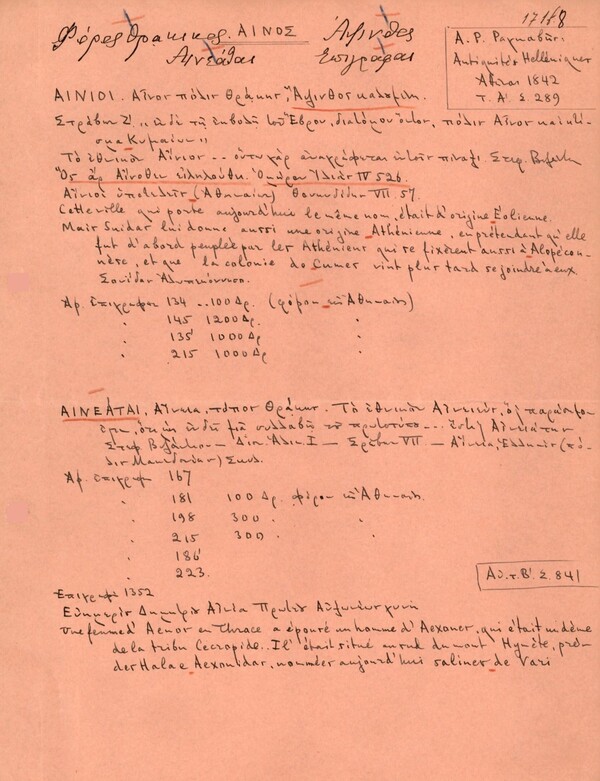 17168
Φόρος θρακικος. ΑΙΝΟΣ Αψινθος
Αινεάται Επιγραφαι
Α. Ρ. Ραγκαβῆς:
Antiquités Helléniques
Athènes 1842
Τ. Α'. Σ. 289
ΑΙΝΙΟΙ. Αἶνος πόλις Θράκης, Ἄψινθος καλουμένη.
Στράβων Ζ' „ ἐν δὲ τῇ ἐκβολῇ τοῦ Ἕβρου, διστόμου ὄντος, πόλις Αἶνος κεῖται κτί-
σμα Κυμαίων „
Τὸ ἐθνικὸν Αἴνιος .. οὕτω γὰρ ἀναγράφονται ἐν τοῖς πίναξι. Στεφ. Βυζάντ.
Ὃς ἄρ' Αἰνόθεν εἰληλούθει. Ὁμήρου Ἰλιὰς IV 526.
Αἴνιοι ὑποτελεῖς (Ἀθηναίων) Θουκυδίδης VII. 57.
Cette ville qui porte aujourd'hui le même nom, était d'origine Éolienne.
Mais Suidas lui donne aussi une origine Athénienne, en prétendant qu'elle
fut d'abord peuplée par les Athéniens qui se fixèrent aussi à Alopécon-
nèse, et que la colonie de Cumes vint plus tard se joindre à eux.
Σουΐδας Ἀλωπεκόννησος.
Ἀρ. ἐπιγραφης 134 .. 100 Δρ. (φόρου εἰς Ἀθηναίους)
" 145 1200 Δρ. "
" 135 1000 Δρ "
" 215 1000 Δρ "
ΑΙΝΕΑΤΑΙ. Αἴνεια, τόπος Θράκης. Τὸ ἐθνικὸν Αἰνειεύς,
Στεφ Βυζάντιον — Διον. Ἁλικ. I — Στράβων VII — Αἴνεια, Ἑλληνὶς (πό-
λις Μακεδονίας) Σκυλ.
Ἀρ. ἐπιγραφης 167
" 181 100 Δρ. φόρου εἰς Ἀθηναίους.
" 198 300 " "
" 215 300 " "
" 186
" 223.
Αὐ. τ. Β'. Σ. 841
Επιγραφη 1352
Une femme d'Aenos en Thrace a épousé un homme d'Aexones, qui était un dème
de la tribu Cecropide.. Il était situé au sud du mont Hymète, près
des Halae Aexonidas, nommées aujourd'hui salines de Vari